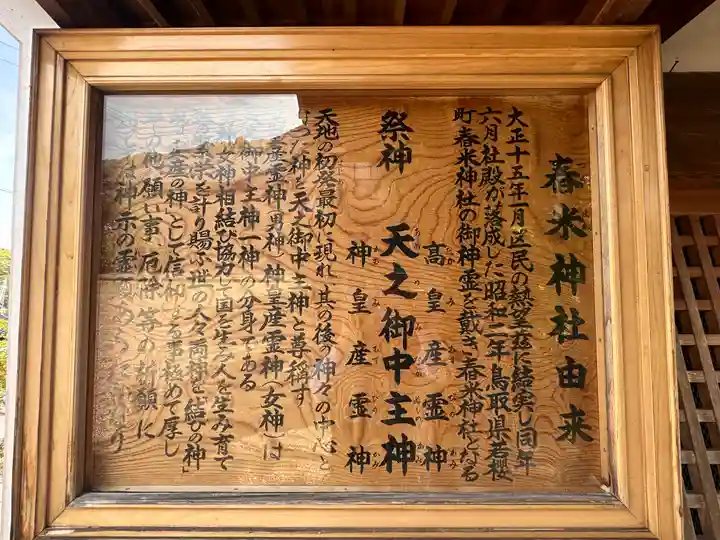 春米神社由来
大正十五年一月区民の熱望茲に結実し同年
六月社殿が落成した昭和二年鳥取県若櫻
町春米神社の御神霊を戴き春米神社となる
高皇産霊神
祭神 天之御中主神
神皇産霊神
天地の初発最初に現れ其の後の神々の中心と
った神を天之御中主神と尊称す
産霊神(男神)神皇産霊神(女神)は
御中主神一神の分身である
女神相結び協力し国を生み人を生み育て
を計り賜ふ世の人々両神を「結びの神」
産の神」として信仰 る事極めて厚し
の他願い事、厄除等の祈願に
は神示の霊